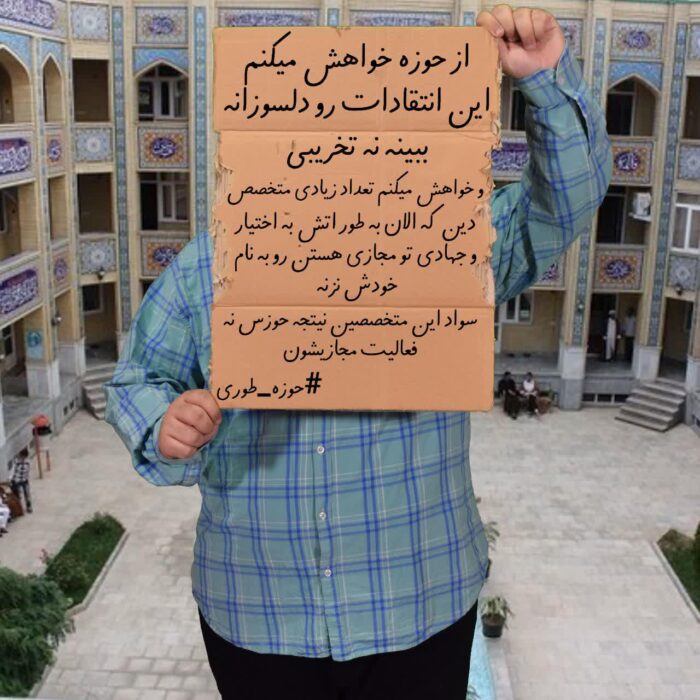 از حوزه خواهش میکنم
این انتقادات رو دلسوزانه
ببینه نه تخریبی
و خواهش میکنم تعداد زیادی متخصص
دین که الان به طور اتش به اختیار
و جهادی تو مجازی هستن رو به نام
خودش نزنه
سواد این متخصصین نیتجه حوزس نه
فعالیت مجازیشون
#حوزه_طوری